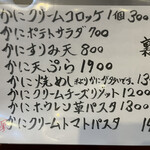 かにクリームコロッケ1個300
かにポテトサラダ 700
かにすりみ天 800
かに天ぷら 1900
かに焼めし
かにクリームチーズリゾット1200
かにホウレン草パスタ13
かにクリームトマトパスタ
裏